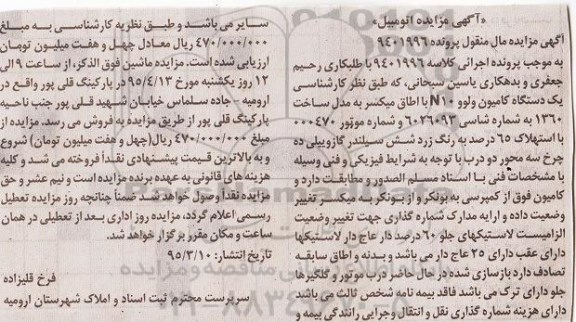 «آگهی مزایده اتومبیل»
آگهی مزایده مال منقول پرونده ۹۴۰۱۹۹۶
به موجب پرونده اجرائی کلاسه ۹۴۰۱۹۹۶ با طلبکاری رحیم
جعفری و بدهکاری یاسین سبحانی، که طبق نظر کارشناسی
یک دستگاه کامیون ولوو N۱۰ با اطاق میکسر به مدل ساخت
۱۳۶۰ به شماره شاسی ۶۰۲۶۰۹۳ و شماره موتور ۰۰۰۴۷۰
با استهلاک ۶۵ درصد به رنگ زرد شش سیلندر گازوییلی ده
چرخ سه محور دو درب با توجه به شرایط فیزیکی و فنی وسیله
با مشخصات فنی بـا اسناد مسلم الصدور و مطابقت دارد و
کامیون فوق از کمپرسی به بونکر و از بـونکر بـه میکسـر تغییر
وضعیت داده و ارایه مدارک شماره گذاری جهت تغییر وضعیت
الزامیست لاستیکهای جلو ۶۰ درصد دار عاج دار لاستیکها
دارای عقب دارای ۲۵ عاج دار می باشد و بدنه و اطاق سابقـه
تصادف دارد بازسازی شده در حال حاضر درب موتور و گلگیرها
جلو دارای ترک می باشد فاقد بیمه نامه شخص ثالث می باشد
دارای هزینه شماره گذاری نقل و انتقال وجرایی رانندگی بیمه و
سـایر می باشـد و طبـق نظر به کارشناسی بـه مبـلغ
۴۷۰/۰۰۰/۰۰۰ ریال معادل چهـل و هفت میلیـون تومـان
ارزیابی شده است. مزایده ماشین فوق الذکر، از ساعت ۹ الی
۱۲ روز یکشنبه مورخ ۹۵/۴/۱۳ در پارکینگ قلی پور واقع در
ارومیه - جاده سلماس خیابان شهید قلی پور جنب ناحیـه
پارکینگ قلی پور از طریق مزایده به فروش می رسد. مزایده از
مبلغ ۴۷۰/۰۰۰/۰۰۰ ریال(چهل و هفت میلیون تومان) شروع
و به بالاترین قیمت پیشنهادی نقـداً فروخته می شـد و کلیه
هزینه های قانونی به عهده برنده مزایده است و نیم عشر و حق
مزایده نقدا وصول خواهد شـد ضمناً چنانچه روز مزایده تعطیل
رسـمی اعلام گردد، مزایده روز اداری بعـد از تعطیلی در همان
ساعت و مکان مقرر برگزار خواهد شد.
تاریخ انتشار: ۹۵/۳/۱۰
فرخ قلیزاده
سرپرست محترم ثبت اسناد و املاک شهرستان ارومیه